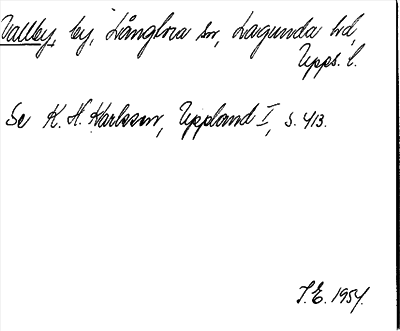 Vallby, by, Långtora sn, Lagunda hd,
Upps. l.
Se K. H. Karlsson, Uppland I, s. 413.
I.E. 1954.